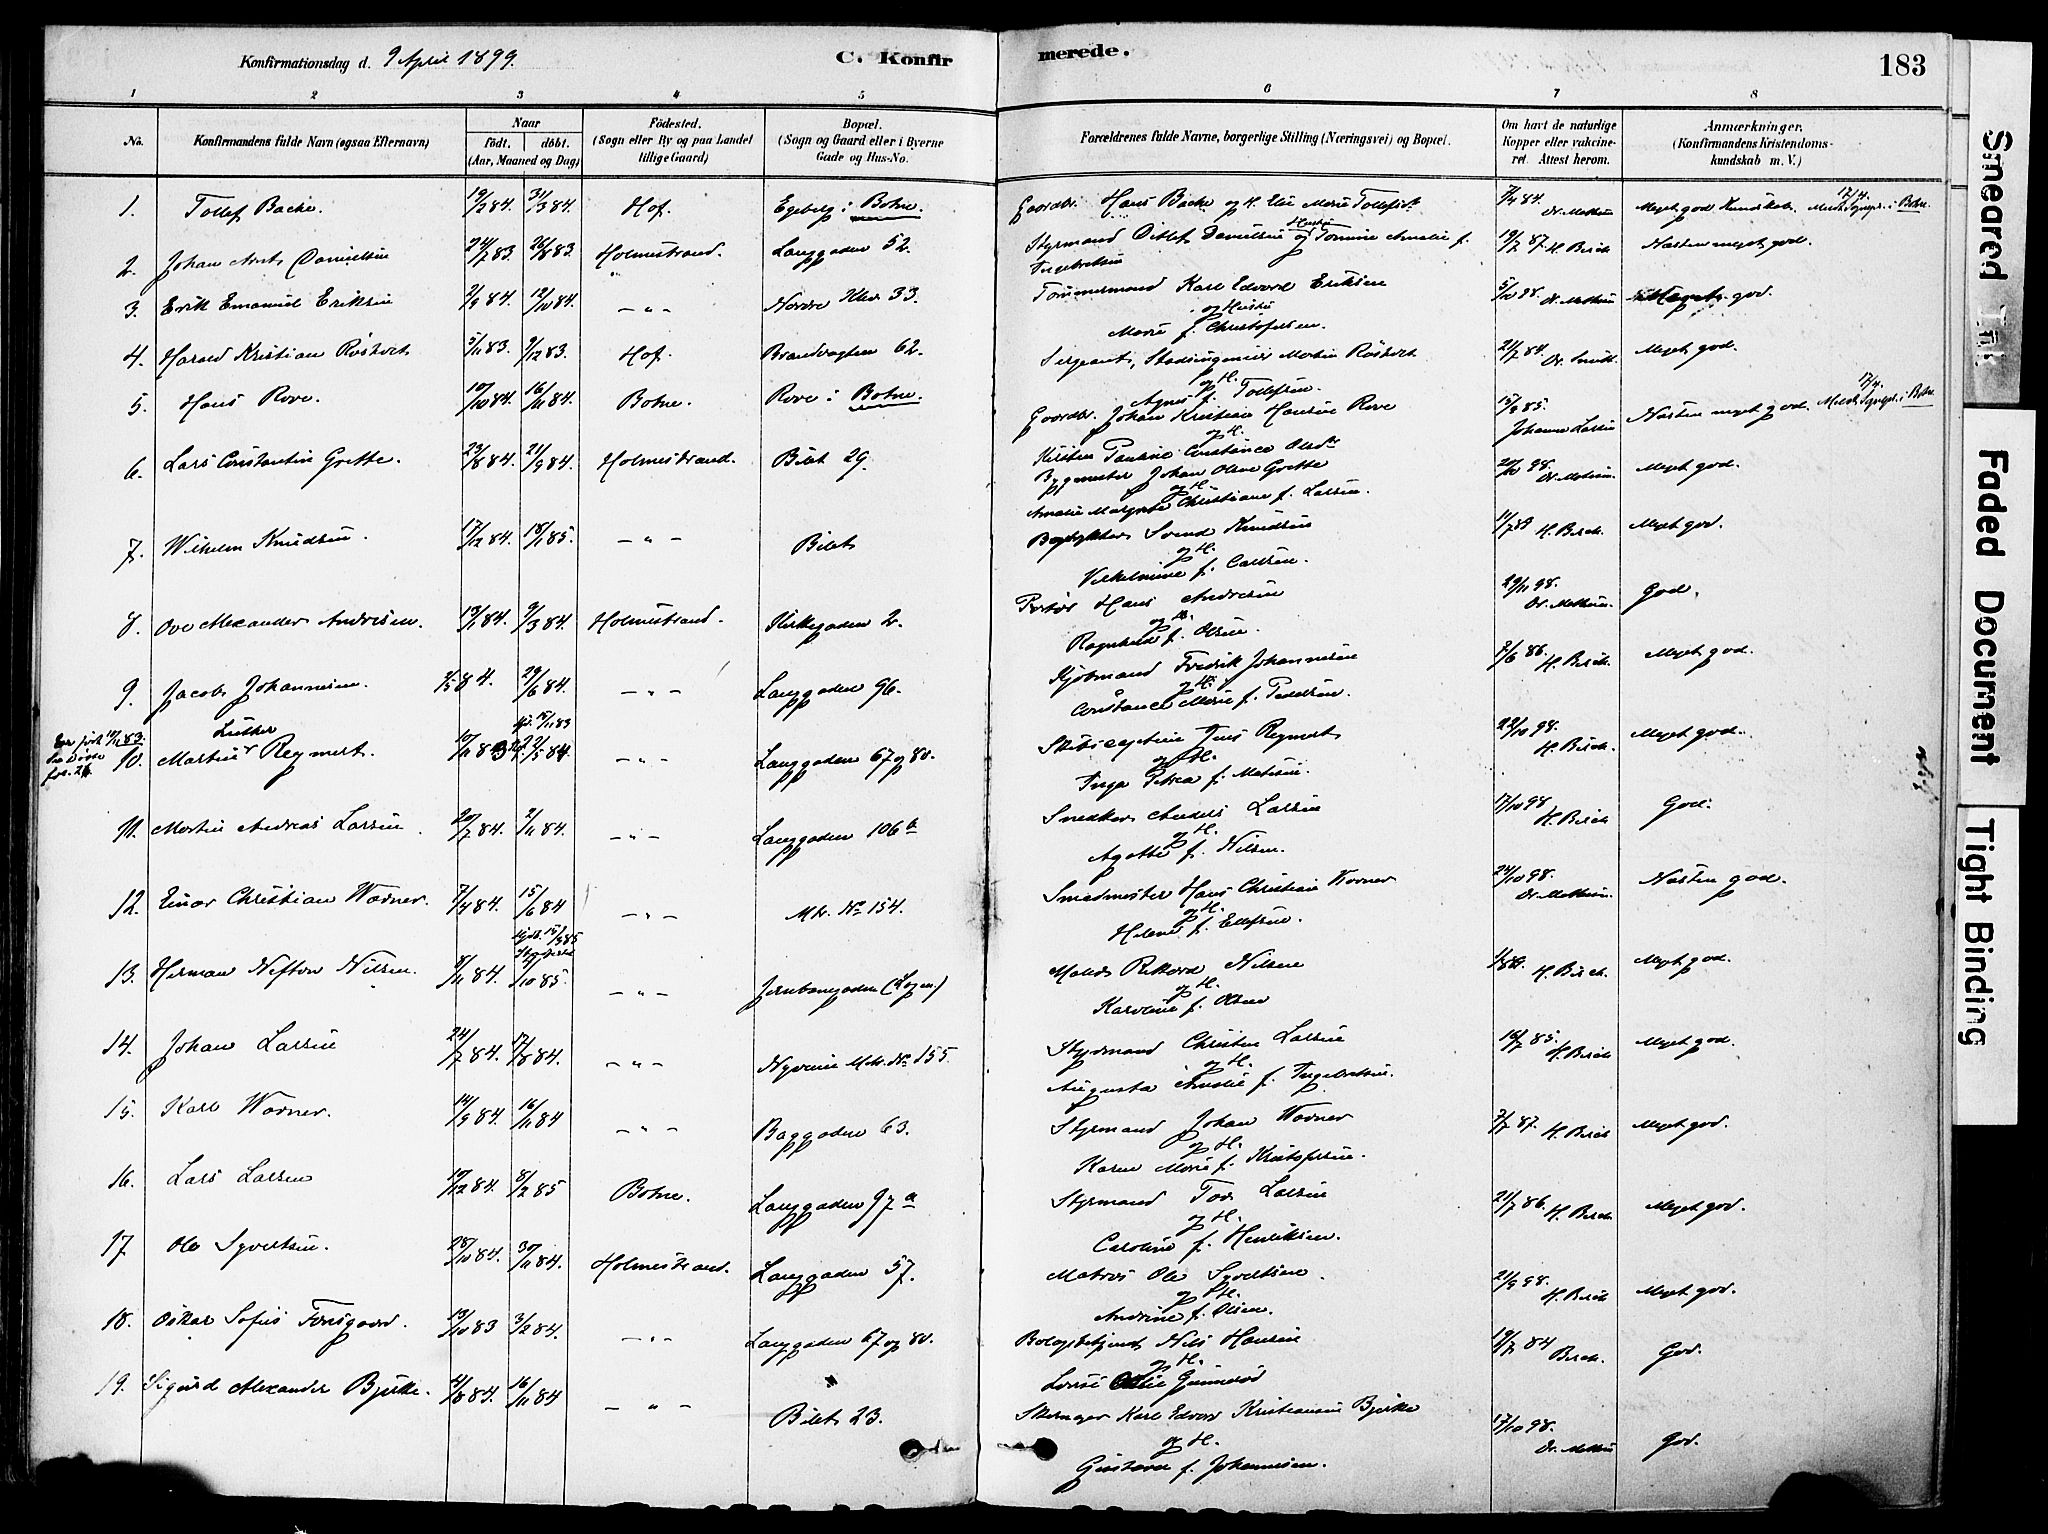 Konfirmationsdag d. 9 April 1899.
C. Konfirmerede.
183
1 2 3 4 5 6 7 8
No.
Konfirmandens fulde Navn (ogsaa Efternavn)
Naar
født. døbt.
(Aar, Maaned og Dag)
Fødested.
(Sogn eller By og paa Landet
tillige Gaard)
Bopæl.
(Sogn og Gaard eller i Byerne
Gade og Hus-No.
Forældrenes fulde Navne, borgerlige Stilling (Næringsvei) og Bopæl.
Om havt de naturlige
Kopper eller vakcine-
ret. Attest herom.
Anmærkninger.
(Konfirmandens Kristendoms-
kundskab m. V.)
1. Tollef Backe. 19/2 84. 31/3 84. Hof. Egeberg i Botne. Gaardbr. Hans Backe og H. Else Marie Tollefsdr. Dr. Mathisen Meget god Kundskab. 17/4.
2. Johan Arnt Danielsen 24/7 83. 26/8 83. Holmestrand. Langgaden 52. Styrmand Ditlef Danielsen og Hustru Tomine Amalie f. Ingebretsen 19/7 87 H. Birch Næsten meget god.
3. Erik Emanuel Eriksen 2/9 84. 12/10 84. — " — Nordre Klev 33. Tømmermand Karl Edvard Eriksen
og Hustru
Marie f. Christofersen. 5/10 98. Dr. Mathisen Meget god.
4. Harald Kristian Røstvet 5/11 83. 9/12 83. Hof. Brandvagten 62. Sergeant, Stadsingeniør Martin Røstvet
og H.
Agnes f. Tollefsen. 21/7 84. Dr. Smith Meget god.
5. Hans Rove. 10/10 84. 16/11 84. Botne. Rove i Botne. Gaardbr. Johan Kristian Hansen Rove
og H.
Kirstine Pauline Constance Olsdr. 15/9 85. Johanne Larsen Næsten meget god. 17/4.
6. Lars Constantin Grette. 23/8 84. 21/9 84. Holmestrand. Bilet 29. Bygmester Johan Olsen Grette
og H.
Amalie Margrete Christiane f. Larsen. 20/10 98. Dr. Mathisen. Meget god.
7. Wilhelm Knudsen. 17/12 84. 18/1 85. — " — Bilet Svend Knudsen
og H.
Vilhelmine f. Carlsen. H. Birch. Meget god.
8. Ove Alexander Andresen. 19/1 84. 9/3 84. Holmestrand. Kirkegaden 2. Hans Andresen
og H.
Ragnhild f. Olsen. 29/11 98. Dr. Mathisen. God.
9. Jacob Johannesen. 29/6 84. — " — Langgaden 96. Kjøbmand Fredrik Johannesen
og H.
Constance Marie f. Pedersen. 7/6 86. H. Birch. Meget god.
10. Martin Luther Reymert. — " — Langgaden 67 og 80. Skibscaptein Jens Reymert
og H.
Inga Petrea f. Mathisen. 22/10 98. H. Birch. Meget god.
11. Martin Andreas Larsen. 20/7 84. 2/11 84. — " — Langgaden 106 b Snedker Anders Larsen
og H.
Agathe f. Nilsen. 17/10 98. H. Birch God.
12. Einar Christian Warner. 7/4 84. 15/6 84 — " — Mtr. No 154. Smedmester Hans Christian Warner
og H.
Helene f. Ellefsen. 24/10 98. Dr. Mathisen. Næsten god.
13. Herman Nefton Nilsen. 8/11 84. — " — Jernbanegaden (Løgen) Nilsen
og H.
Karoline f. Olsen H. Birch. Meget god.
14. Johan Larsen 24/7 84. 17/8 84. — " — Nyveien Mtr. No 155. Styrmand Christen Larsen
og H.
Augusta Amalie f. Ingebretsen. H. Birch Meget god.
15. Karl Warner. 14/9 84. 16/11 84 — " — Baggaden 63. Styrmand Johan Warner
og H.
Karen Marie f. Kristofersen. 7/7 87. H. Birch Meget god.
16. Lars Larsen 10/12 84. 8/2 85 Botne. Langgaden 97 a Styrmand Tor Larsen
og H.
Caroline f. Henriksen. 21/7 86. H. Birch Meget god.
17. Ole Syvertsen. 28/10 84. 30/11 84. Holmestrand. Langgaden 57. Matros Ole Syvertsen.
og H.
Andrine f. Olsen. 21/9 98. H. Birch Meget god.
18. Oskar Sofus Forsgaard. 13/10 83 3/2 84. — " — Langgaden 67 og 80. Nils Hansen
og H.
Lovise 19/7 84 Birch. God.
19. Sigurd Alexander Bjerke. 16/11 84 — " — Bilet 23. Karl Edvard Kristiansen Bjerke
og H.
Gustava f. Johannesen. 17/10 98. God.
Smeared Ink
Faded Document
Tight Binding